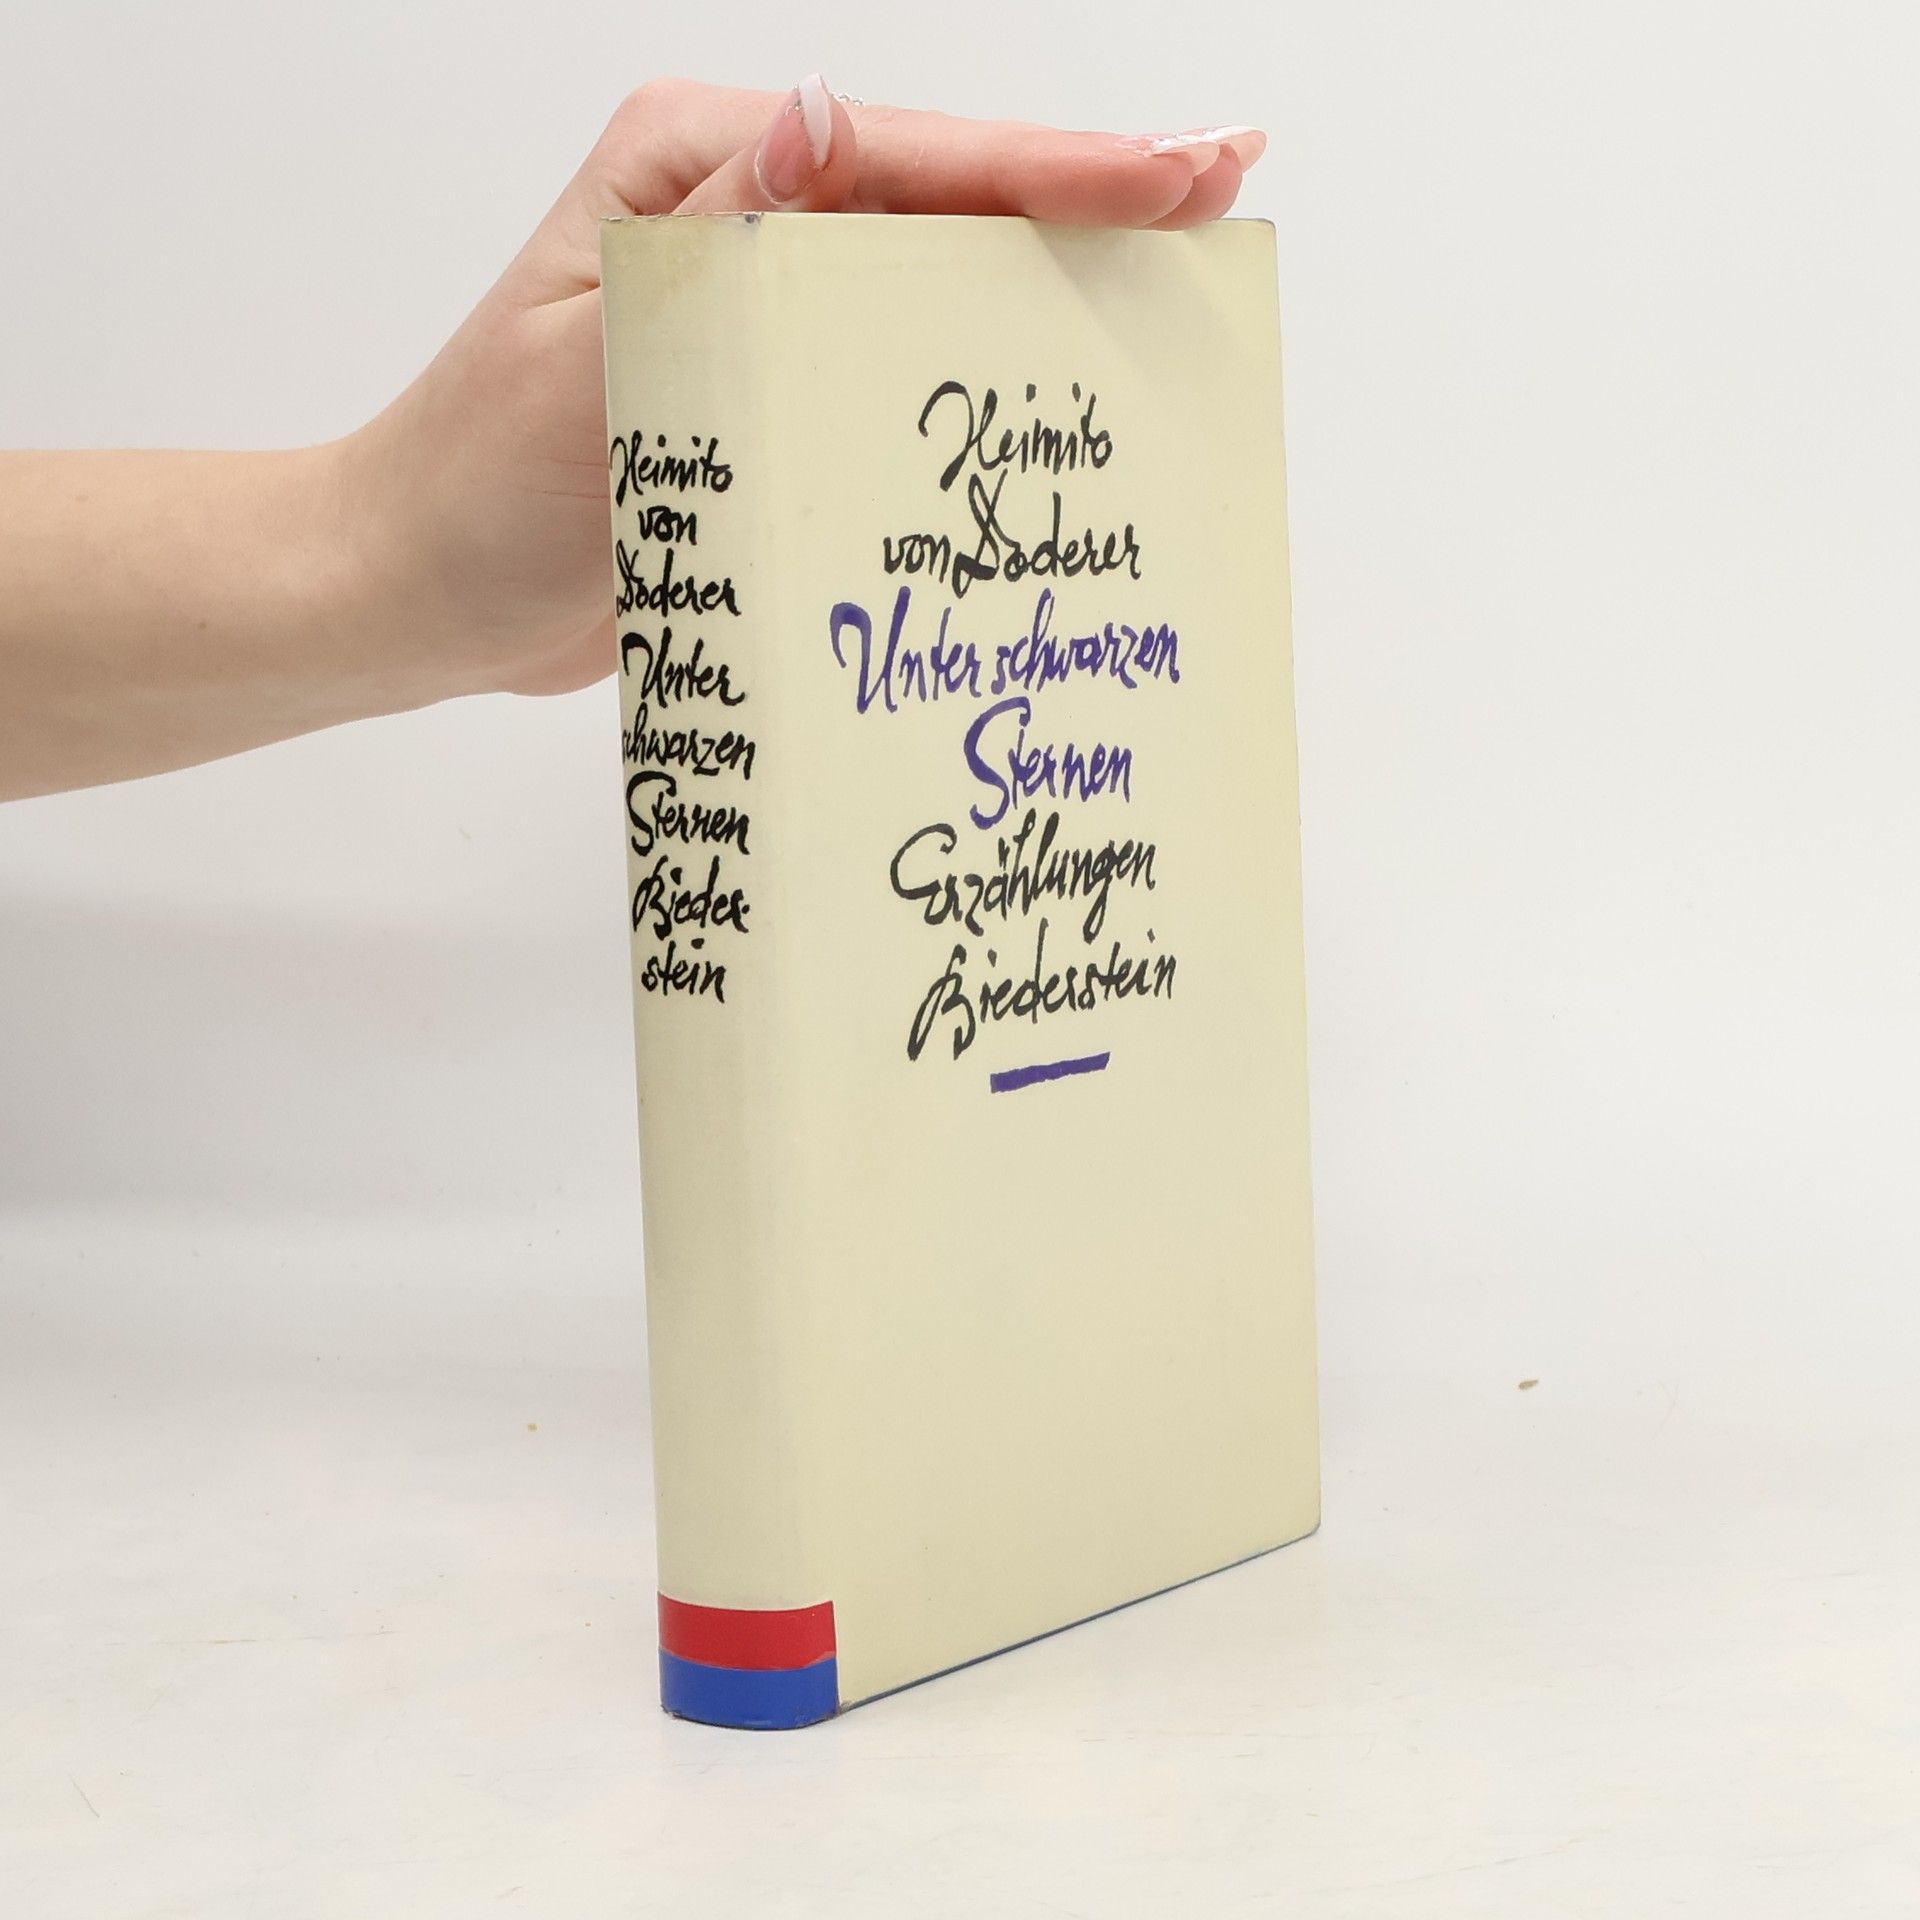 Heimito
von
Doderer
Unter
schwarzen
Sternen
Bieder-
stein
Heimito
von Doderer
Unter schwarzen
Sternen
Erzählungen
Biederstein